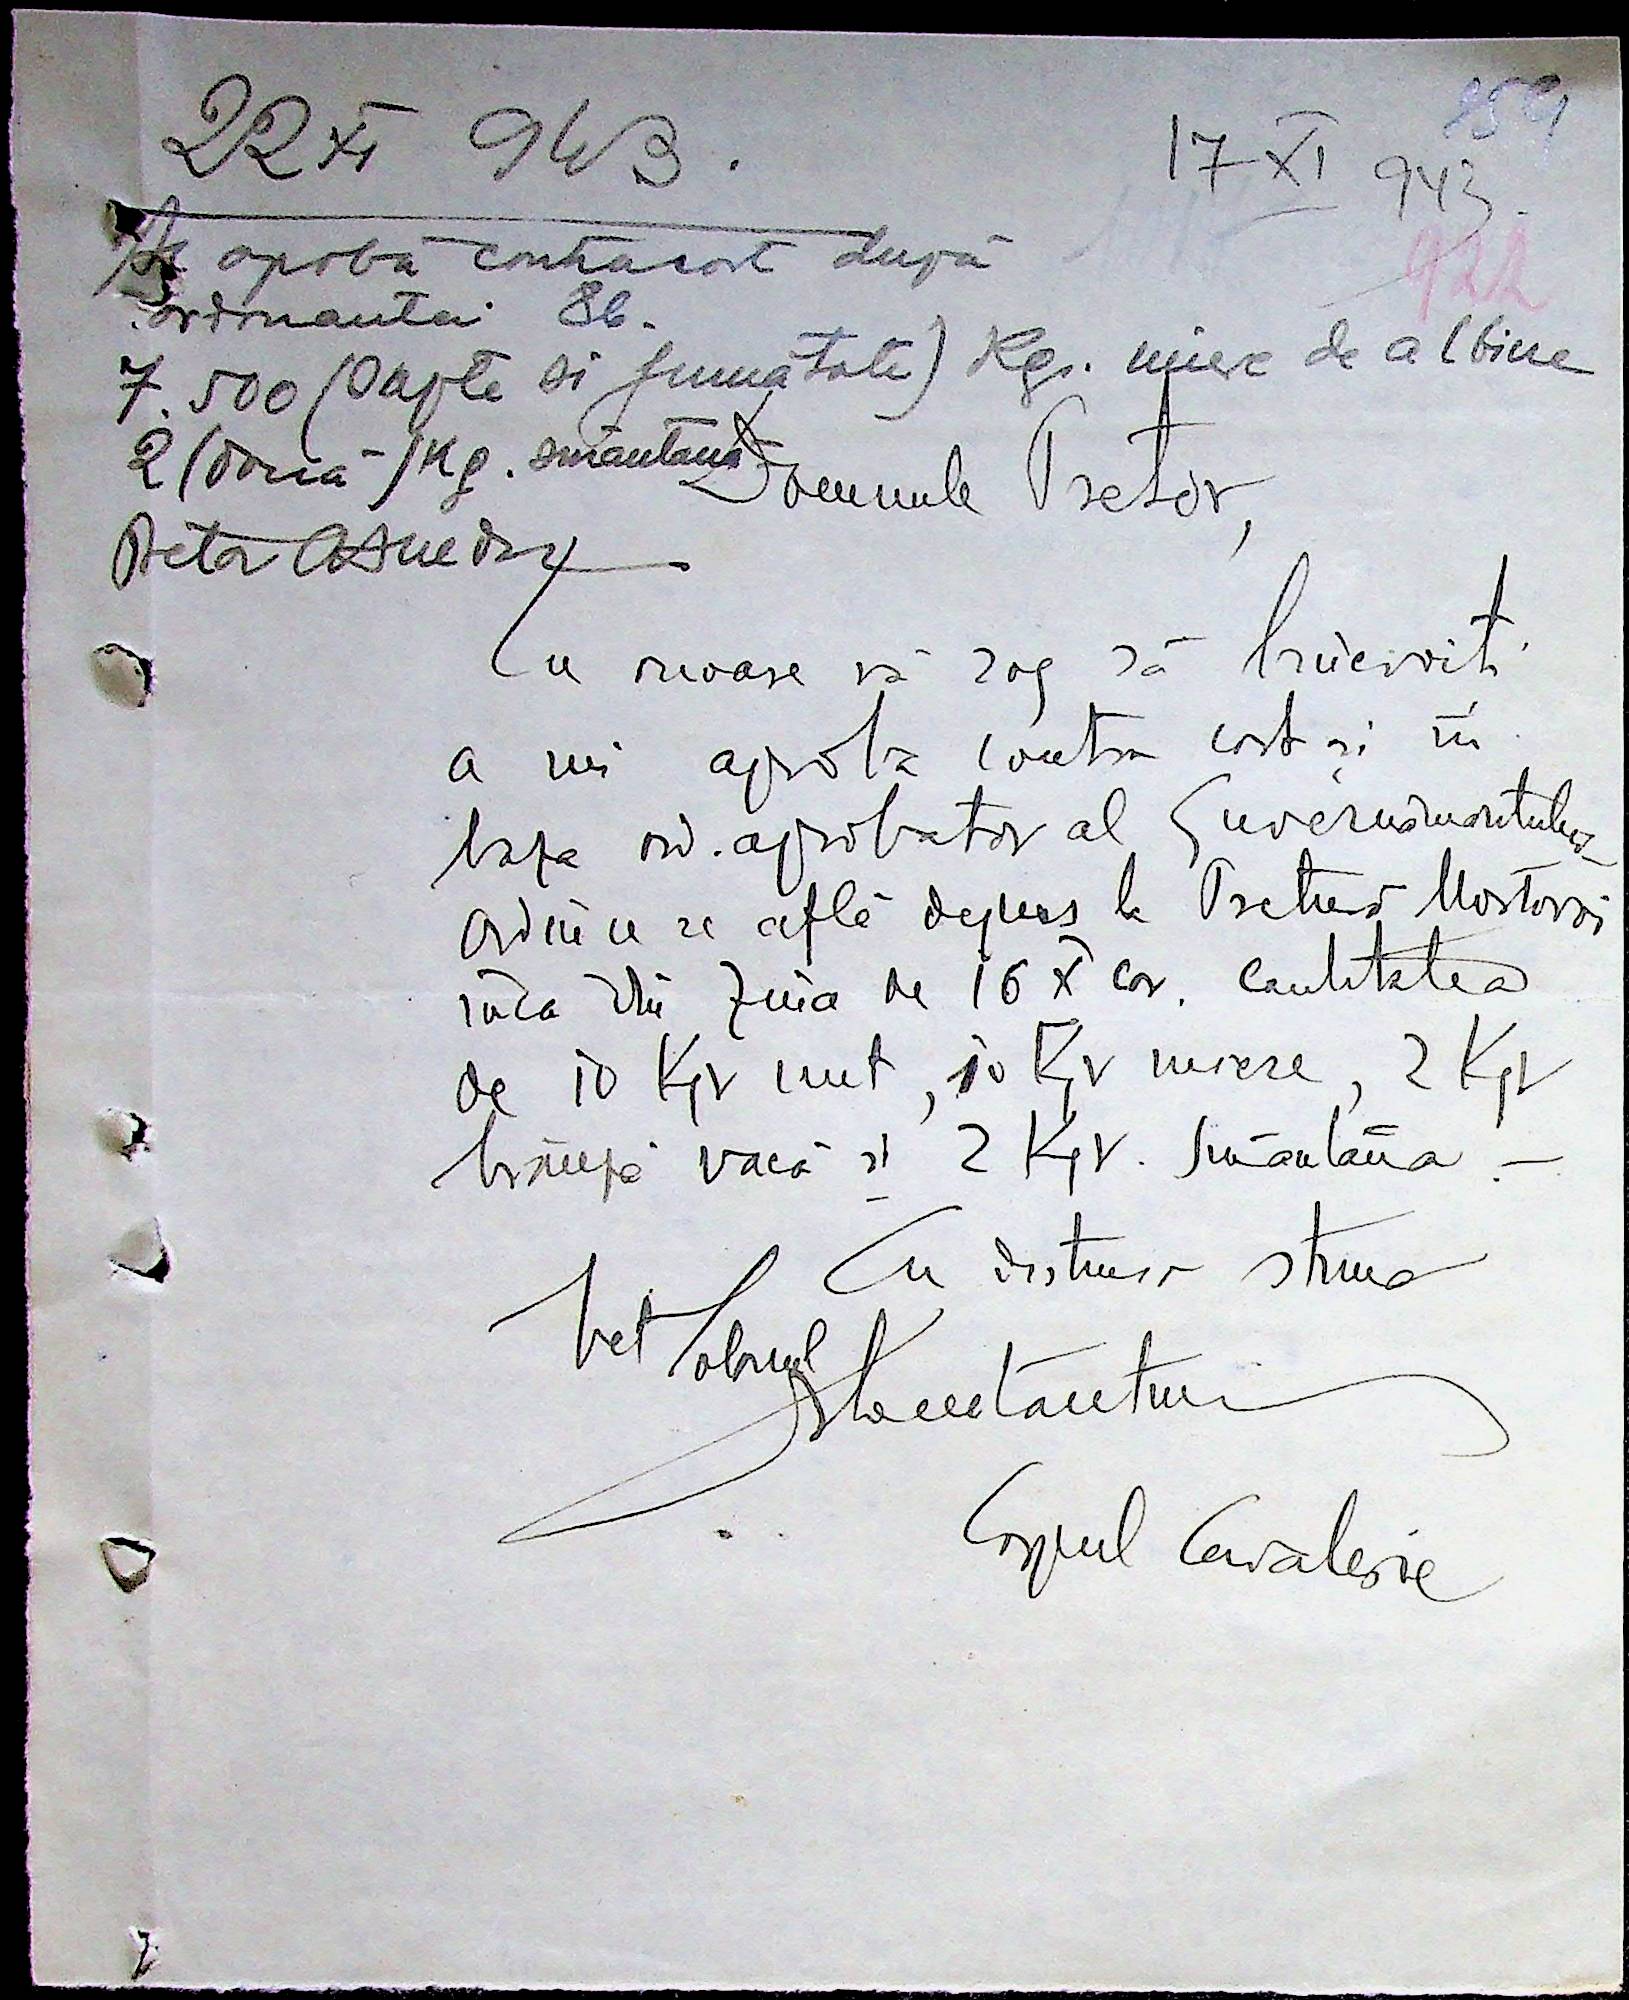 22 XI 943.
17 XI 943.
922
Se aprobă contracost după
ordonanta 86.
7.500 (Sapte si jumătate) Kgr. miere de albine
2 (două) Kg. smântană
Pretor
Domnule Pretor,
Cu onoare vă rog să binevoiti
a mi aproba contra cost si în
baza ord. aprobator al Guvernămantului
ordin ce se află depus la Pretura Mostovoi
încă din ziua de 16 X cor. cantitatea
de 10 Kgr unt, 10 Kgr miere, 2 Kgr
brânză vacă si 2 Kgr. smântână –
Cu distinsă stima
Corpul Cavalerie